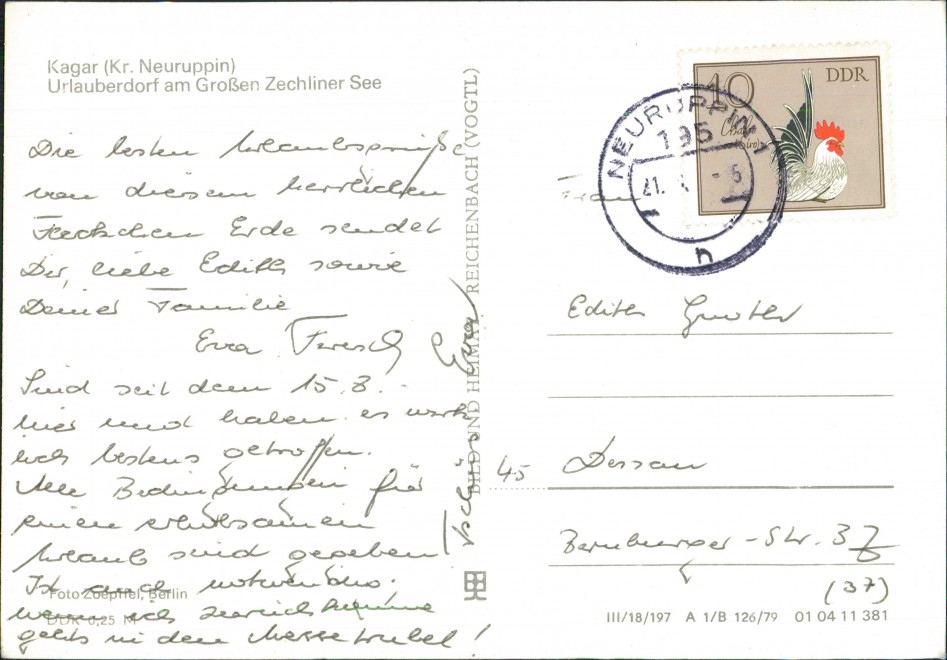 Kagar (Kr. Neuruppin)
Urlauberdorf am Großen Zechliner See
Die besten Urlaubsgrüße
von diesem herrlichen
Fleckchen Erde sendet
Dir, liebe Edith sowie
Deiner Familie
Eva
Sind seit dem 15.8.
hier und haben es wirk
lich bestens getroffen.
Alle Bedingungen für
einen erholsamen
Urlaub sind gegeben
Ist auch notwendig,
wenn ich
gehts in den Messetrubel!
Foto Zoepffel, Berlin
DDR 0,25 M
Tschüss Eva
BILD UND HEIMAT REICHENBACH (VOGTL)
10
DDR
NEURUPPIN 1
195
21.
n
Frau
Edith
45 Dessau
Bernburger-Str. 37
(37)
III/18/197 A 1/B 126/79 01 04 11 381